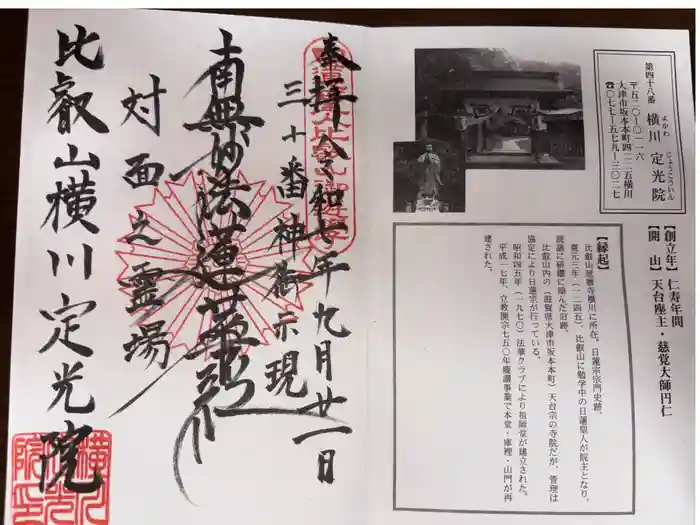 第四十八番 横川 定光院
よかわ じょうこういん
〒五二〇-〇一一六
大津市坂本本町四二二五横川
☎〇七七-五七九-三〇二七
【創立年】仁寿年間
【開 山】天台座主・慈覚大師円仁
【縁起】
比叡山延暦寺横川に所在。日蓮宗宗門史跡。
寛元三年（一二四五）、比叡山に勉学中の日蓮聖人が院主となり、
読誦に研鑽に励んだ旧跡。
比叡山内の（滋賀県大津市坂本本町）天台宗の寺院だが、管理は
協定により日蓮宗が行っている。
昭和四五年（一九七〇）法華クラブにより祖師堂が建立された。
平成一七年、立教開宗七五〇年慶讃事業で本堂・庫裡・山門が再
建された。
奉拝 令和七年 九月廿一日
三十番神御示現
南無妙法蓮華経
対面之霊場
比叡山横川定光院
横川
定光
院印